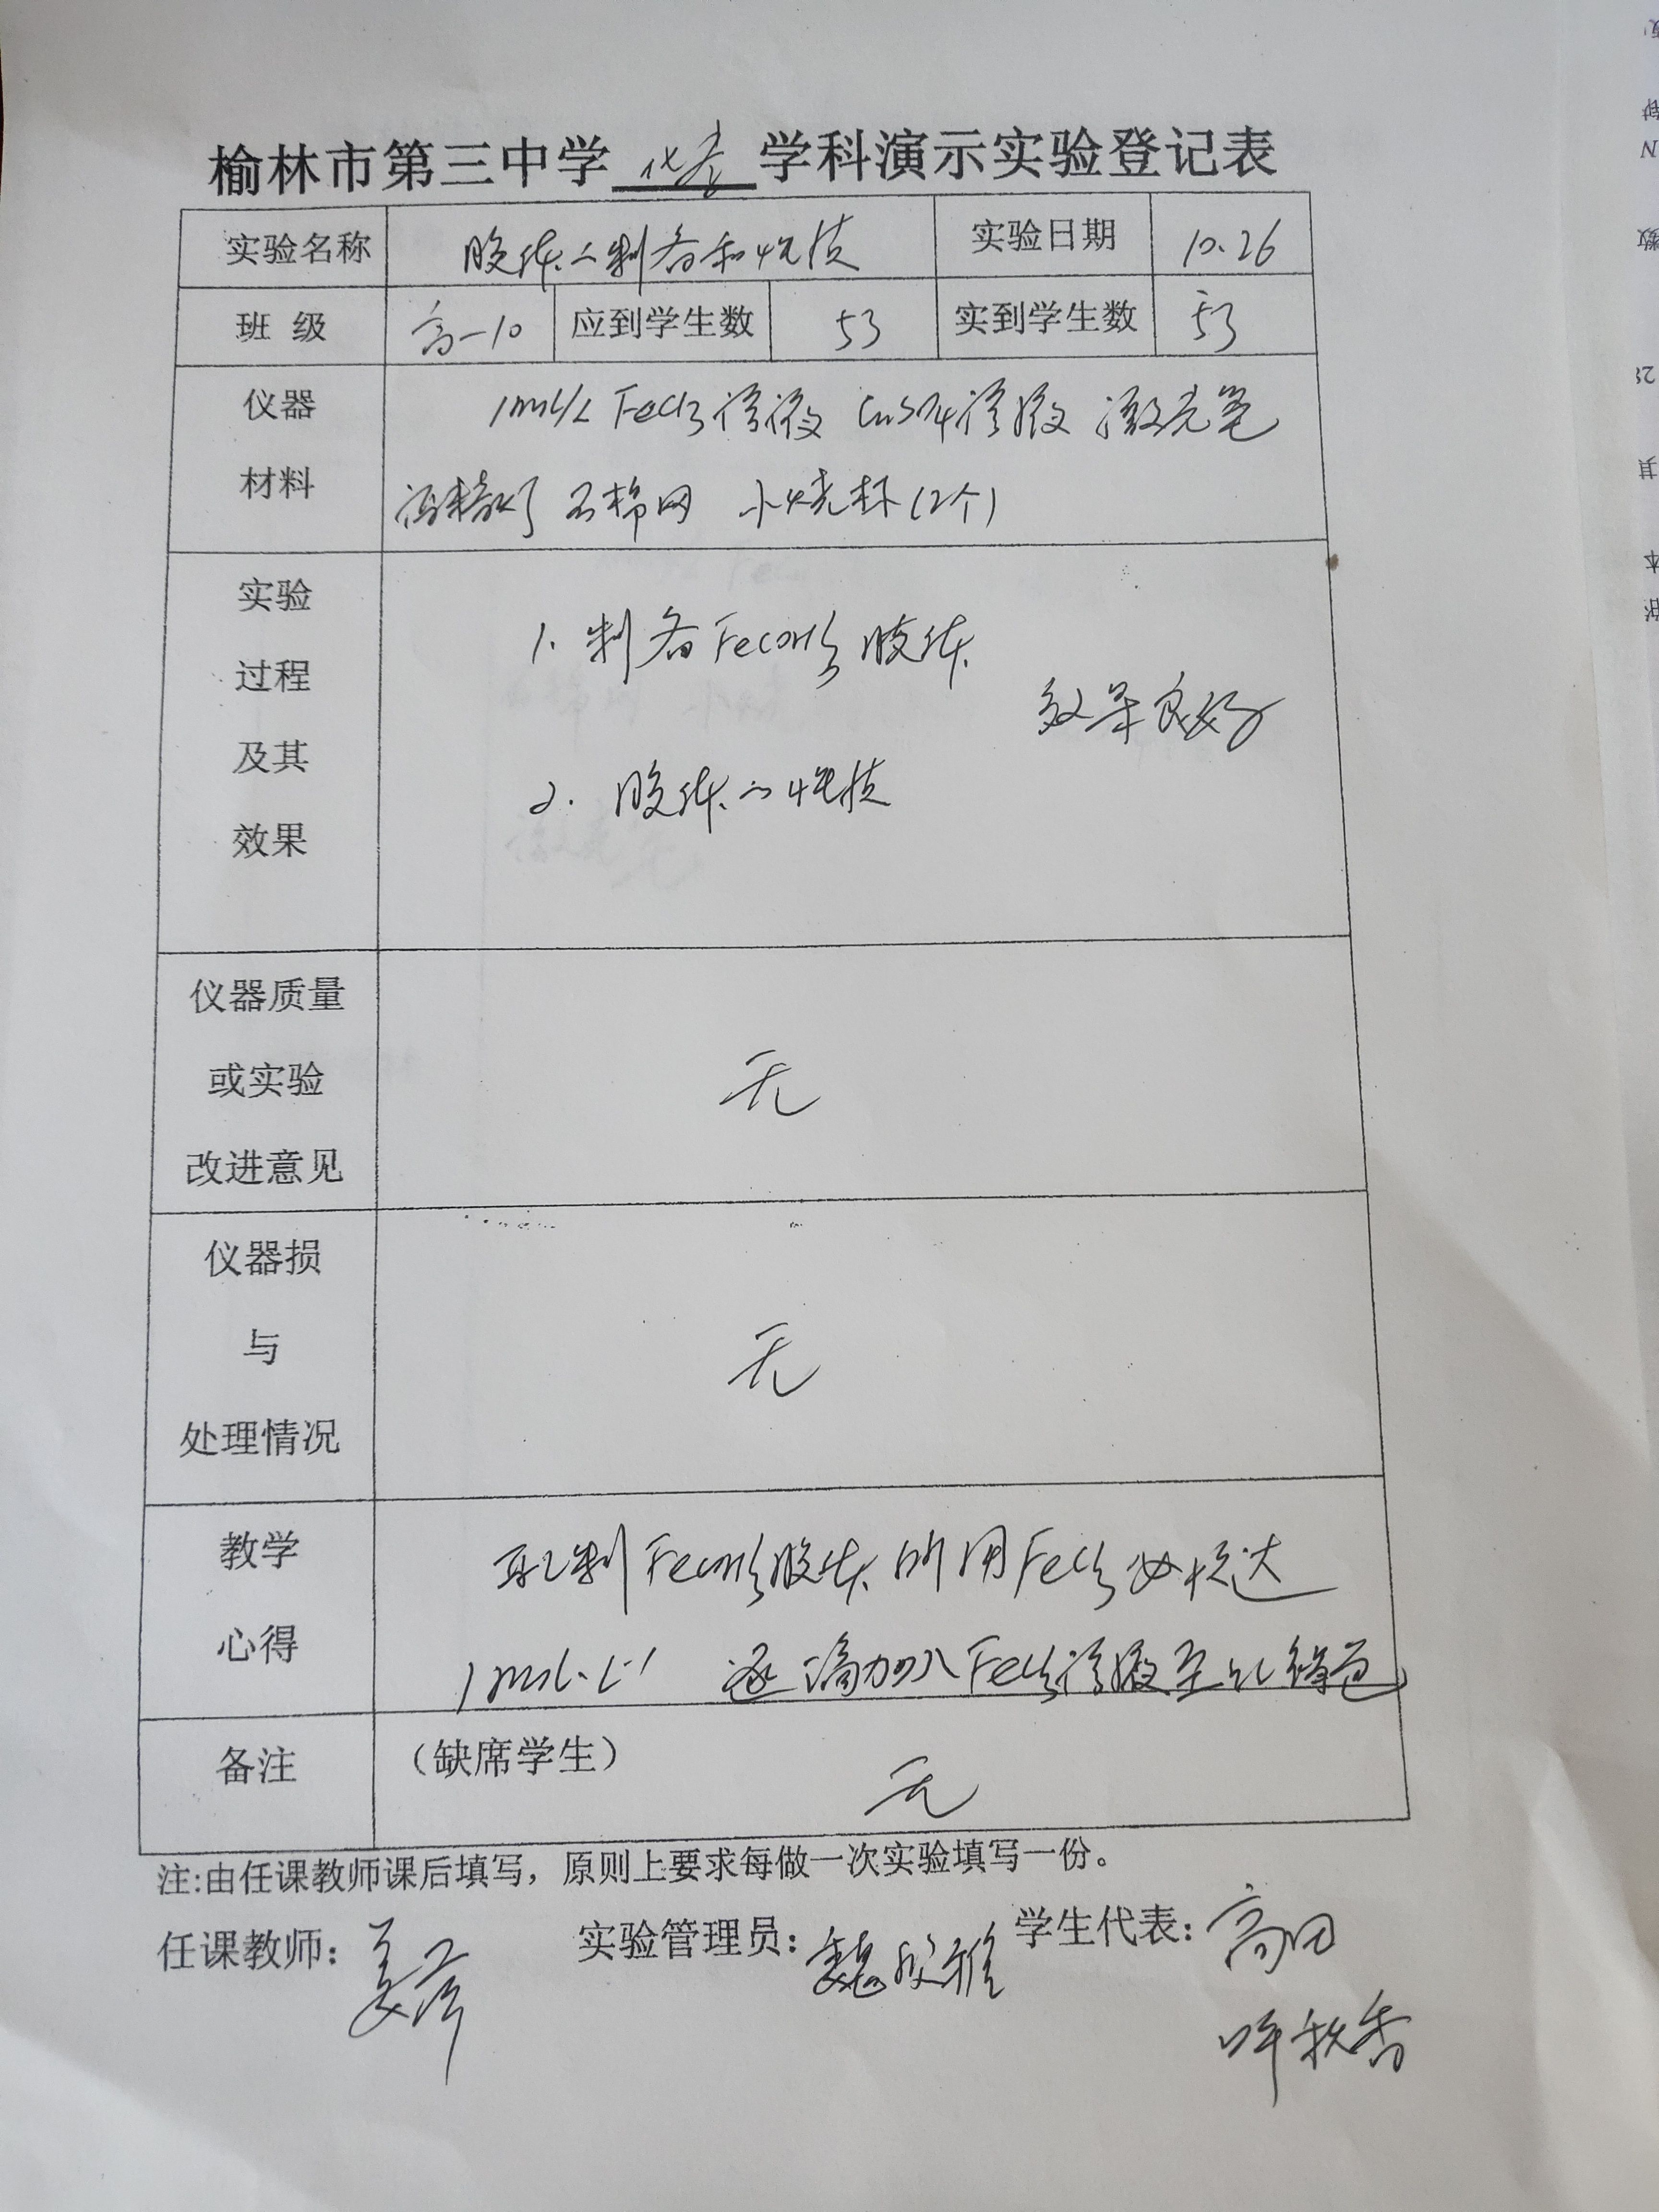 榆林市第三中学 化学 学科演示实验登记表
实验名称 胶体的制备和性质 实验日期 10.26
班 级 高一10 应到学生数 53 实到学生数 53
仪器 1mol/L FeCl3溶液 CuSO4溶液 激光笔
材料 酒精灯 石棉网 小烧杯(2个)
实验
过程
及其
效果
1. 制备Fe(OH)3胶体
效果良好
2. 胶体的性质
仪器质量
或实验
改进意见
无
仪器损
与
处理情况
无
教学 配制Fe(OH)3胶体所用FeCl3必须达
心得 1mol·L-1 逐滴加入FeCl3溶液至红褐色
备注 （缺席学生） 无
注:由任课教师课后填写，原则上要求每做一次实验填写一份。
任课教师: 实验管理员: 学生代表: